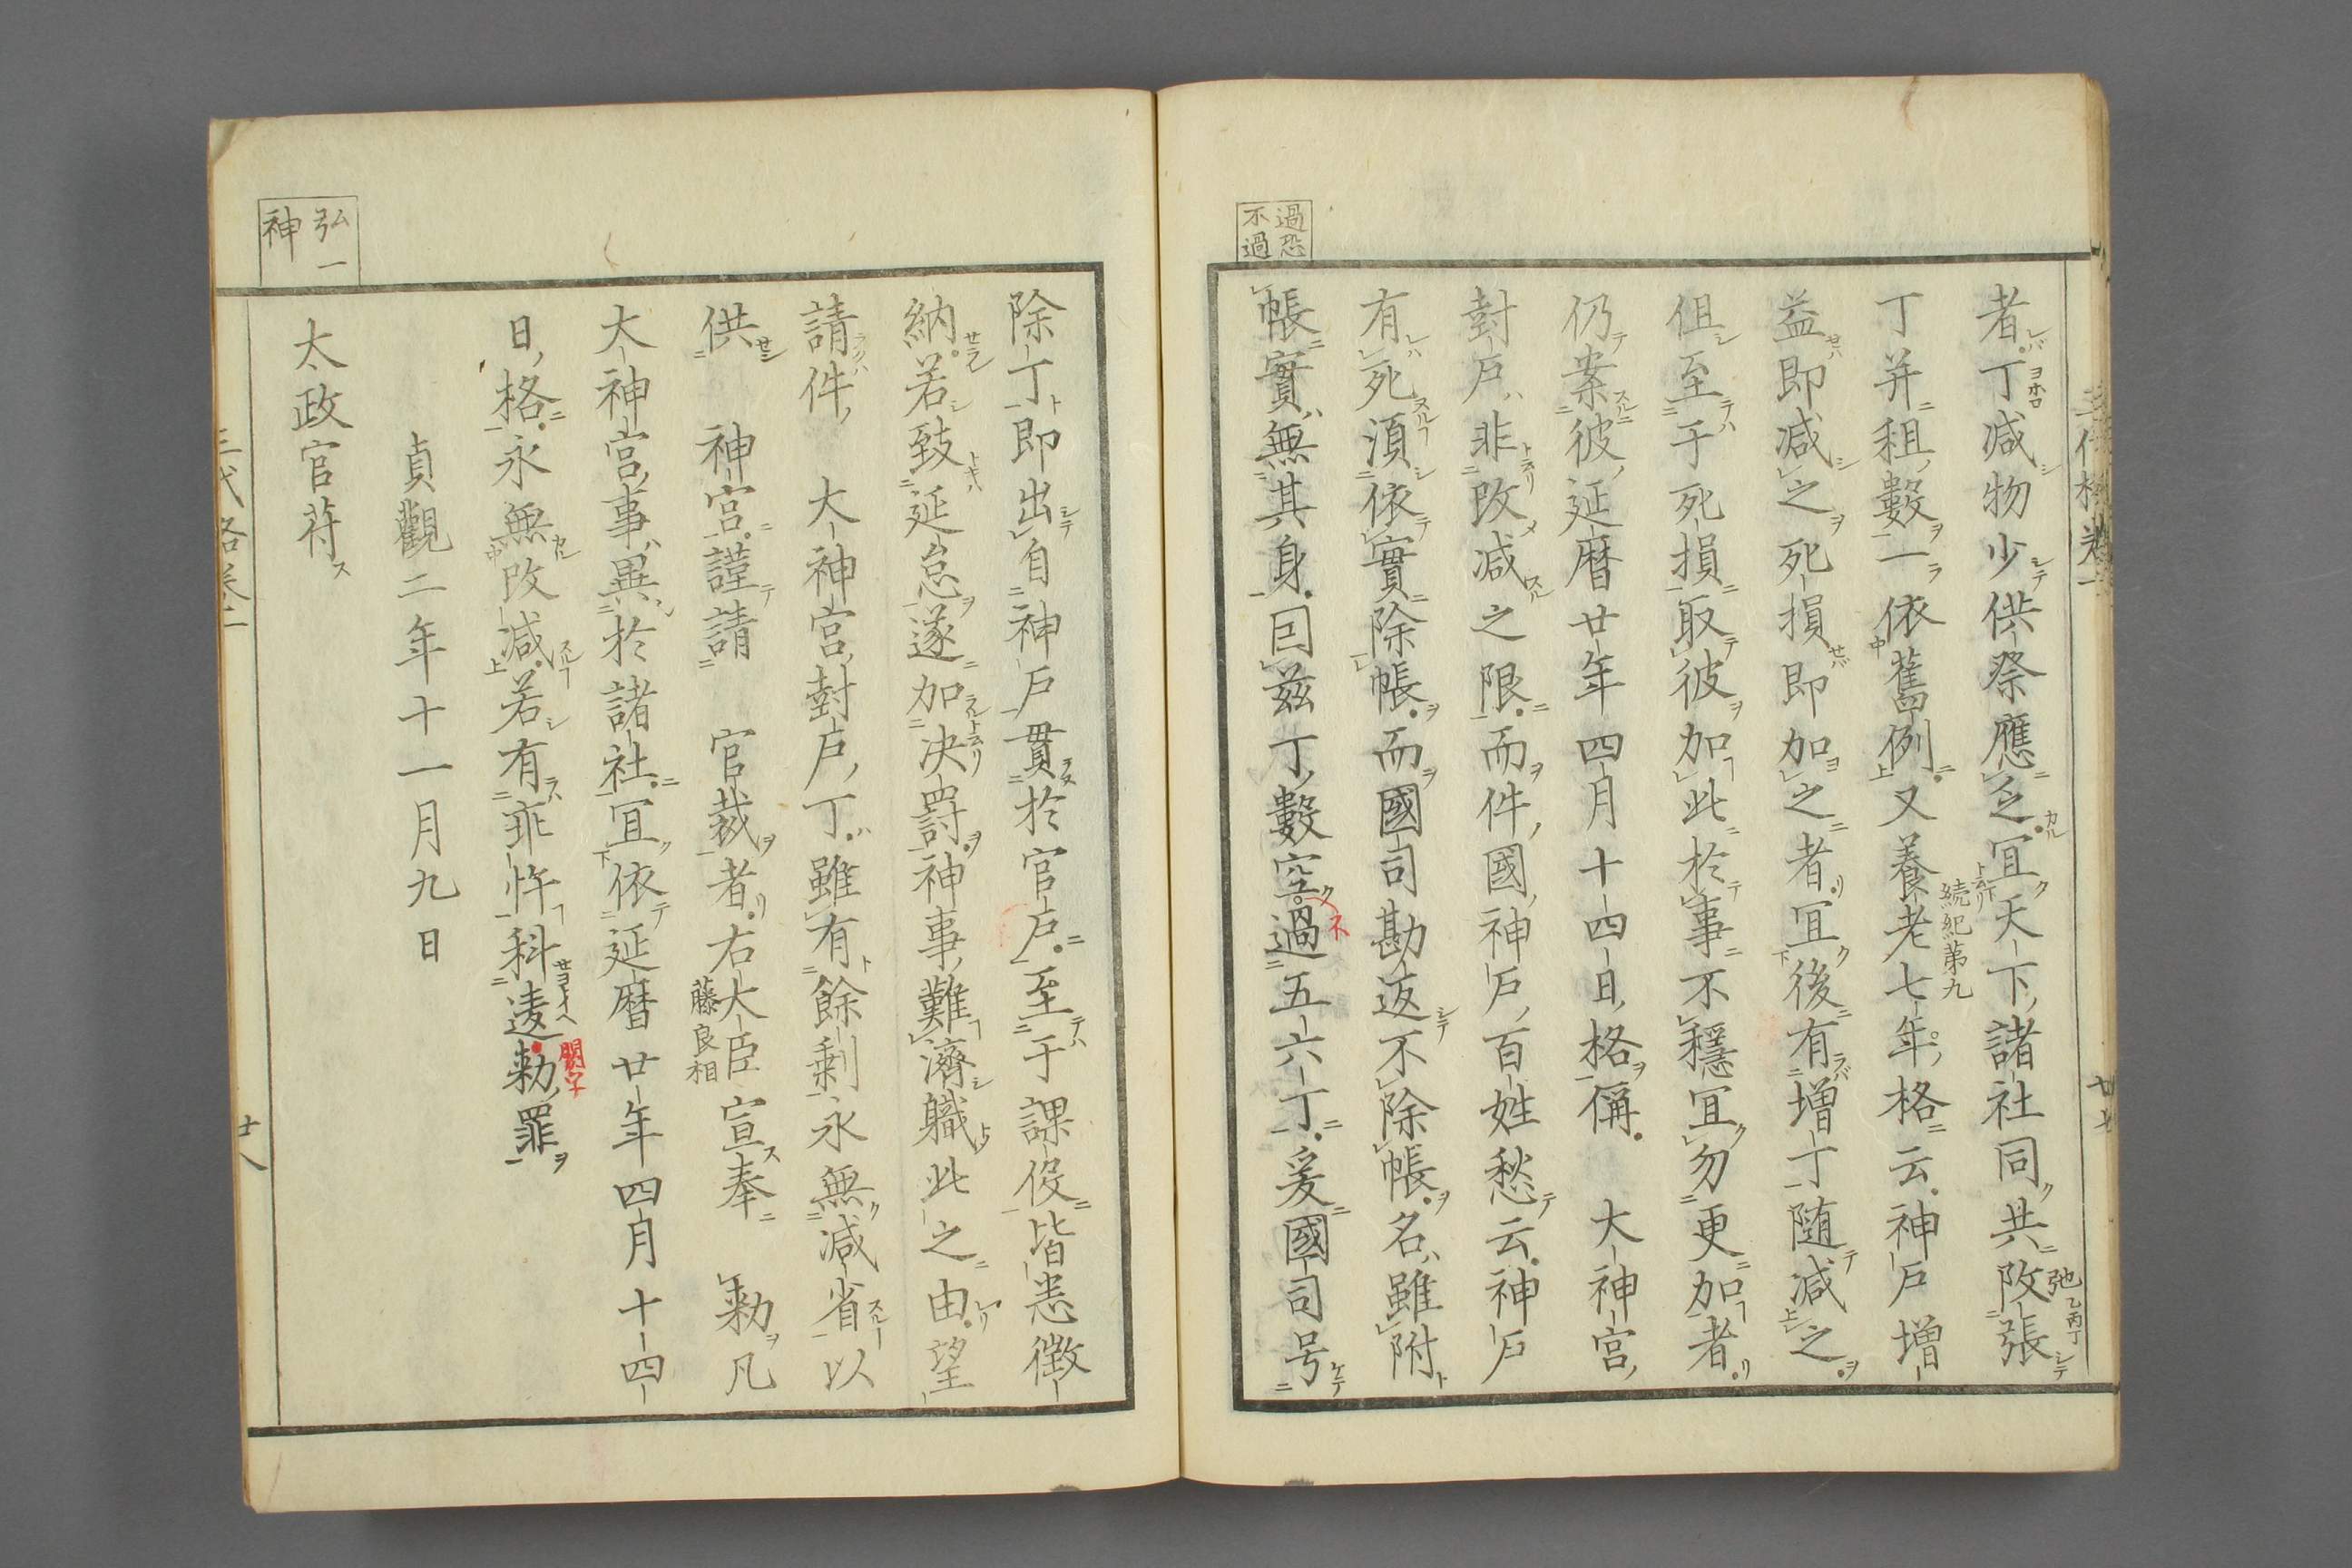 過恐
不過
三代格巻一
廿七
者丁減物少供祭應乏冝天下諸社同共改張
弛乙丙丁
丁并租數一依舊例又養老七年格云神戸増
続紀第九
益即減之死損即加之者冝後有増丁随減之
但至于死損取彼加此於事不穩冝勿更加者
仍案彼延暦廿年四月十四日格偁大神宮
封戸非改減之限而件國神戸百姓愁云神戸
有死須依實除帳而國司勘返不除帳名雖附
帳實無其身因茲丁數空過五六丁爰國司号
不
除丁即出自神戸貫於官戸至于課役皆悉徴
納若致延怠遂加决罸神事難濟職此之由望
請件大神宮封戸丁雖有餘剰永無減省以
供神宮謹請官裁者右大臣宣奉勅凡
藤良相
大神宮事異於諸社冝依延暦廿年四月十四
日格永無改減若有乖忤科違勅罪
闕字
貞觀二年十一月九日
弘一
神
太政官苻
三代格巻一
廿八